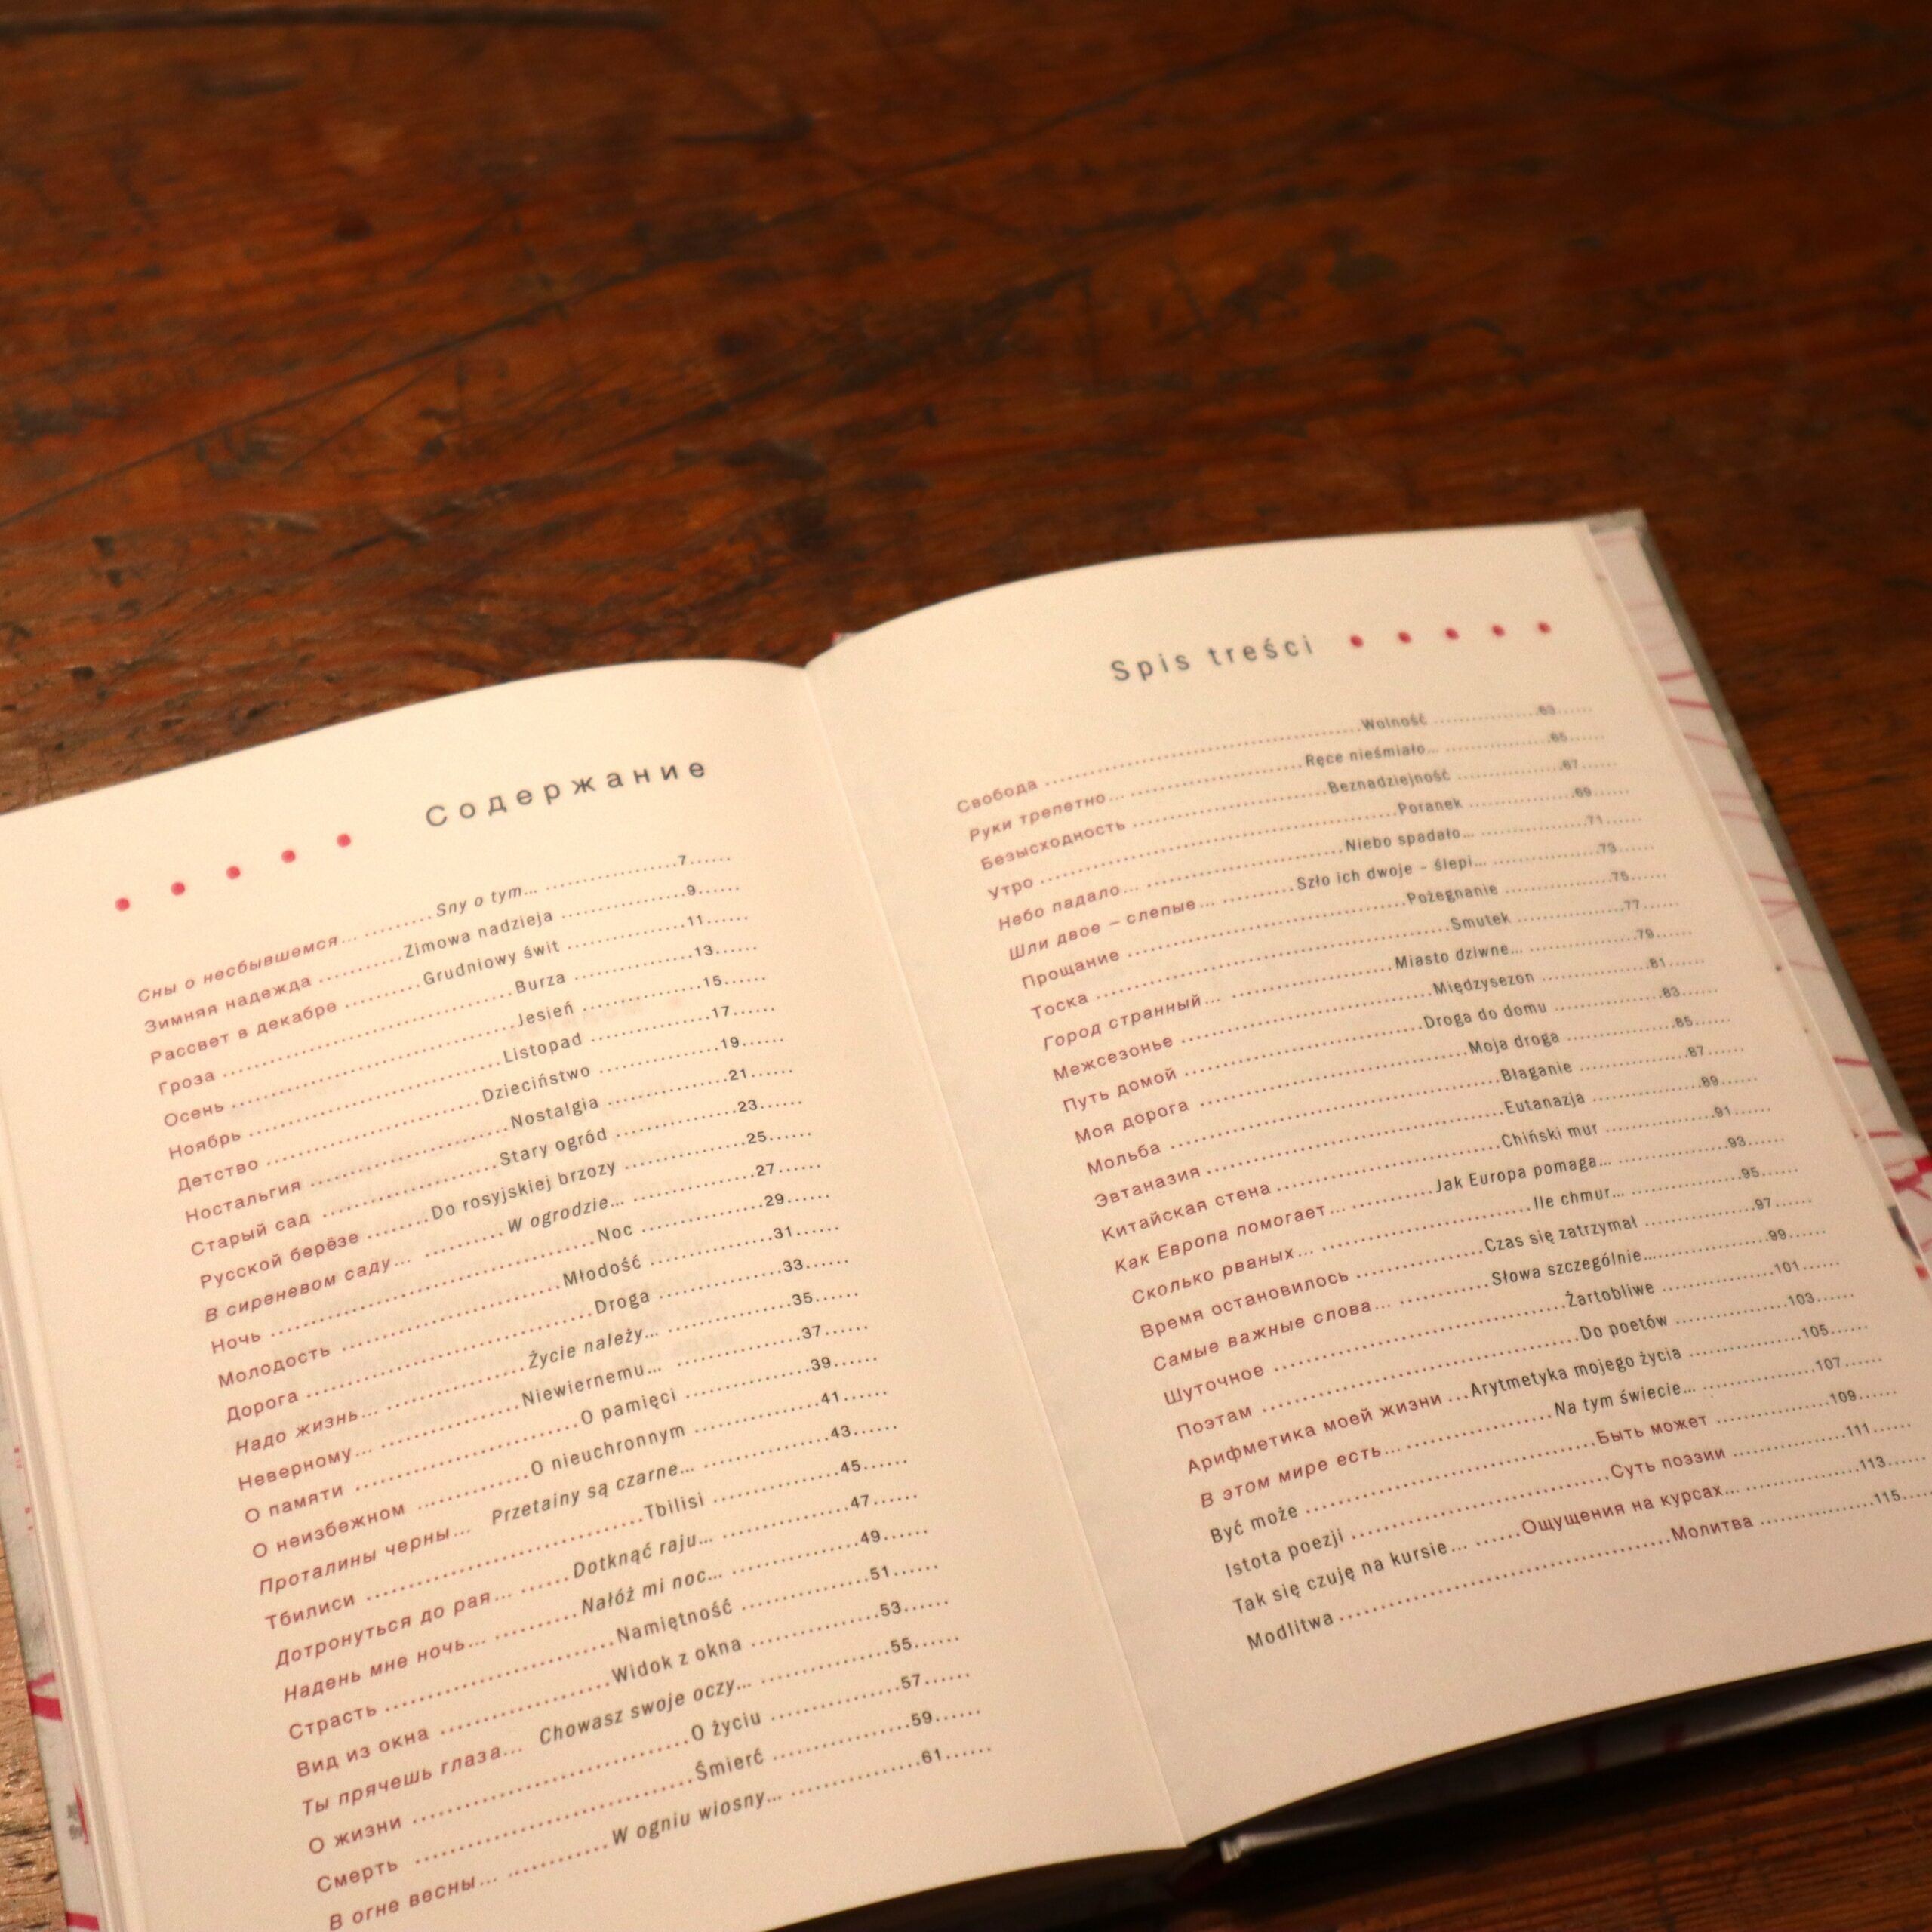 Содержание
Сны о несбывшемся... ..........Sny o tym... ....................7......
Зимняя надежда ............Zimowa nadzieja ..................9......
Рассвет в декабре ...........Grudniowy świt .................11......
Гроза ..........................................Burza .................13......
Осень .........................................Jesień .................15......
Ноябрь .....................................Listopad .................17......
Детство ...............................Dzieciństwo .................19......
Ностальгия .............................Nostalgia .................21......
Старый сад .........................Stary ogród .................23......
Русской берёзе ........Do rosyjskiej brzozy .................25......
В сиреневом саду... ...........W ogrodzie... .................27......
Ночь ...............................................Noc .................29......
Молодость ...............................Młodość .................31......
Дорога .........................................Droga .................33......
Надо жизнь... ....................Życie należy... .................35......
Неверному... ....................Niewiernemu... .................37......
О памяти ...............................O pamięci .................39......
О неизбежном ................O nieuchronnym .................41......
Проталины черны... Przetainy są czarne... .................43......
Тбилиси .......................................Tbilisi .................45......
Дотронуться до рая... .......Dotknąć raju... .................47......
Надень мне ночь... ............Nałóż mi noc... .................49......
Страсть ................................Namiętność .................51......
Вид из окна ........................Widok z okna .................53......
Ты прячешь глаза... Chowasz swoje oczy... .................55......
О жизни .......................................O życiu .................57......
Смерть .......................................Śmierć .................59......
В огне весны... ...............W ogniu wiosny... .................61......
Spis treści
Свобода .............................................Wolność .................63......
Руки трепетно... .........................Ręce nieśmiało... .................65......
Безысходность ............................Beznadziejność .................67......
Утро ...................................................Poranek .................69......
Небо падало... ............................Niebo spadało... .................71......
Шли двое – слепые... ..........Szło ich dwoje - ślepi... .................73......
Прощание .......................................Pożegnanie .................75......
Тоска ..................................................Smutek .................77......
Город странный... .......................Miasto dziwne... .................79......
Межсезонье ...................................Międzysezon .................81......
Путь домой .................................Droga do domu .................83......
Моя дорога .....................................Moja droga .................85......
Мольба ..............................................Błaganie .................87......
Эвтаназия .........................................Eutanazja .................89......
Китайская стена ...............................Chiński mur .................91......
Как Европа помогает... ...........Jak Europa pomaga... .................93......
Сколько рваных... .............................Ile chmur... .................95......
Время остановилось .................Czas się zatrzymał .................97......
Самые важные слова... ............Słowa szczególnie... .................99......
Шуточное .........................................Żartobliwe .................101......
Поэтам ............................................Do poetów .................103......
Арифметика моей жизни ...Arytmetyka mojego życia .................105......
В этом мире есть... ....................Na tym świecie... .................107......
Być może .......................................Быть может .................109......
Istota poezji ...................................Суть поэзии .................111......
Tak się czuję na kursie... ......Ощущения на курсах... .................113......
Modlitwa .............................................Молитва .................115......